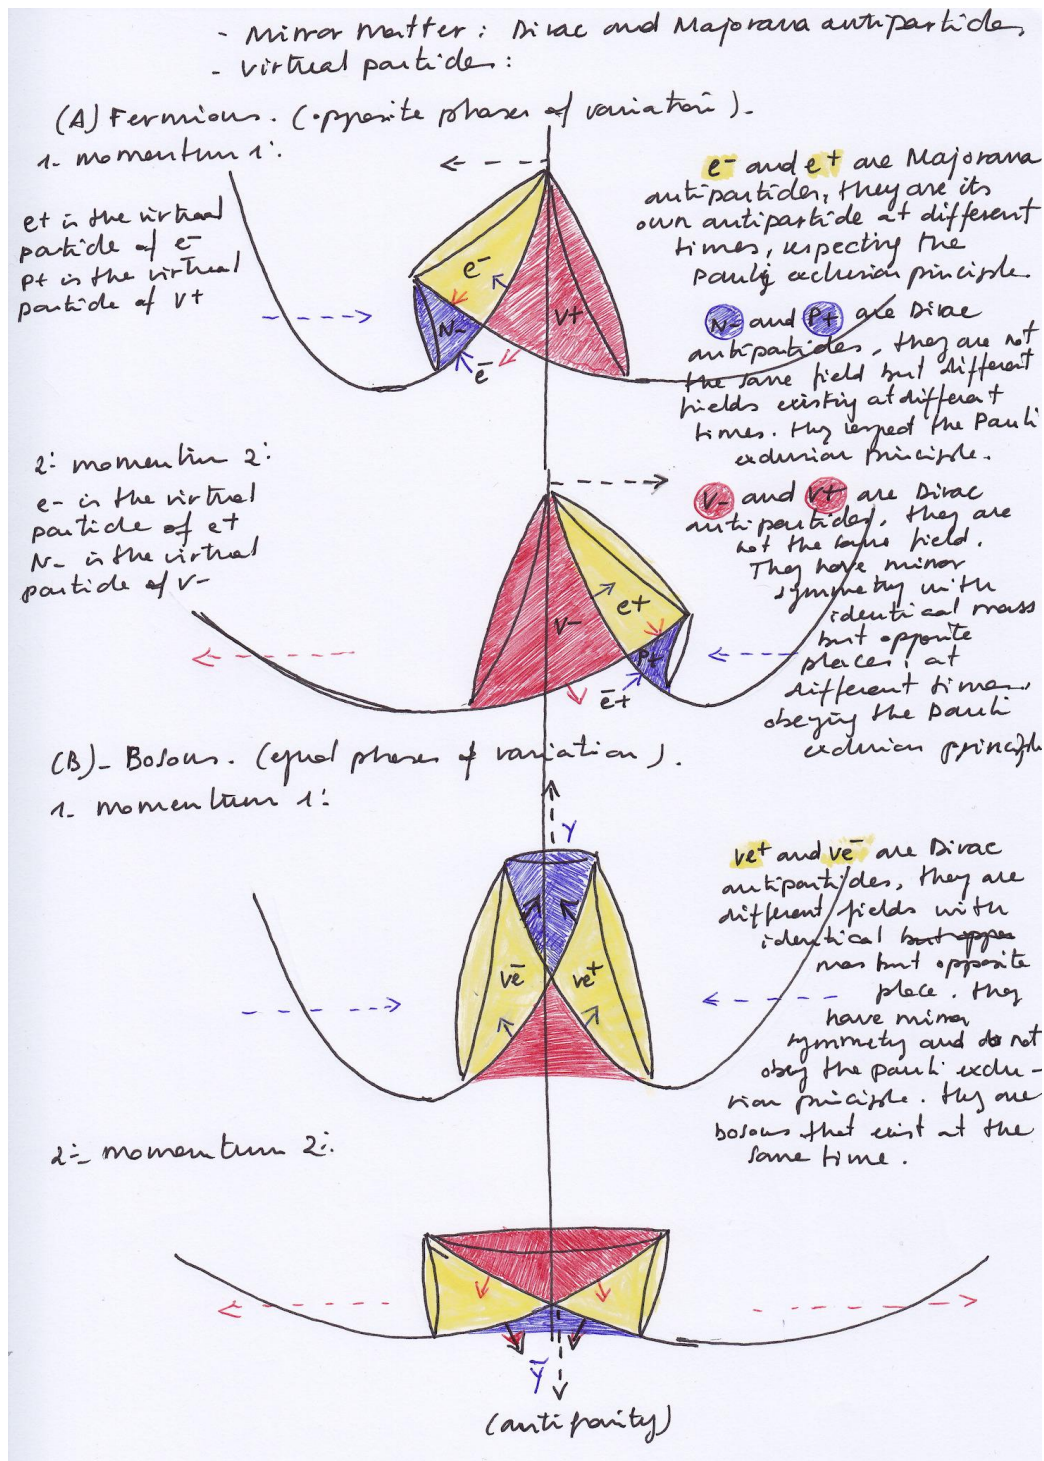 - Mirror Matter: Dirac and Majorana antiparticles
- Virtual particles:
(A) Fermions. (opposite phases of variation).
1- momentum 1:
e+ is the virtual
particle of e-
P+ is the virtual
particle of V+
e-
N-
V+
ē
e- and e+ are Majorana
antiparticles, they are its
own antiparticle at different
times, respecting the
Pauli exclusion principle.
N- and P+ are Dirac
antiparticles, they are not
the same field but different
fields existing at different
times. they respect the Pauli
exclusion principle.
2- momentum 2:
e- is the virtual
particle of e+
N- is the virtual
particle of V-
V-
e+
P+
ē+
V- and V+ are Dirac
antiparticles, they are
not the same field.
They have mirror
symmetry with
identical mass
but opposite
places, at
different times,
obeying the Pauli
exclusion principle
(B)- Bosons. (equal phases of variation).
1- momentum 1:
Y
ve-
ve+
ve+ and ve- are Dirac
antiparticles, they are
different fields with
identical but oppo
mas but opposite
place. they
have mirror
symmetry and do not
obey the Pauli exclu-
sion principle. they are
bosons that exist at the
same time.
2- momentum 2:
Ȳ
(antiparity)